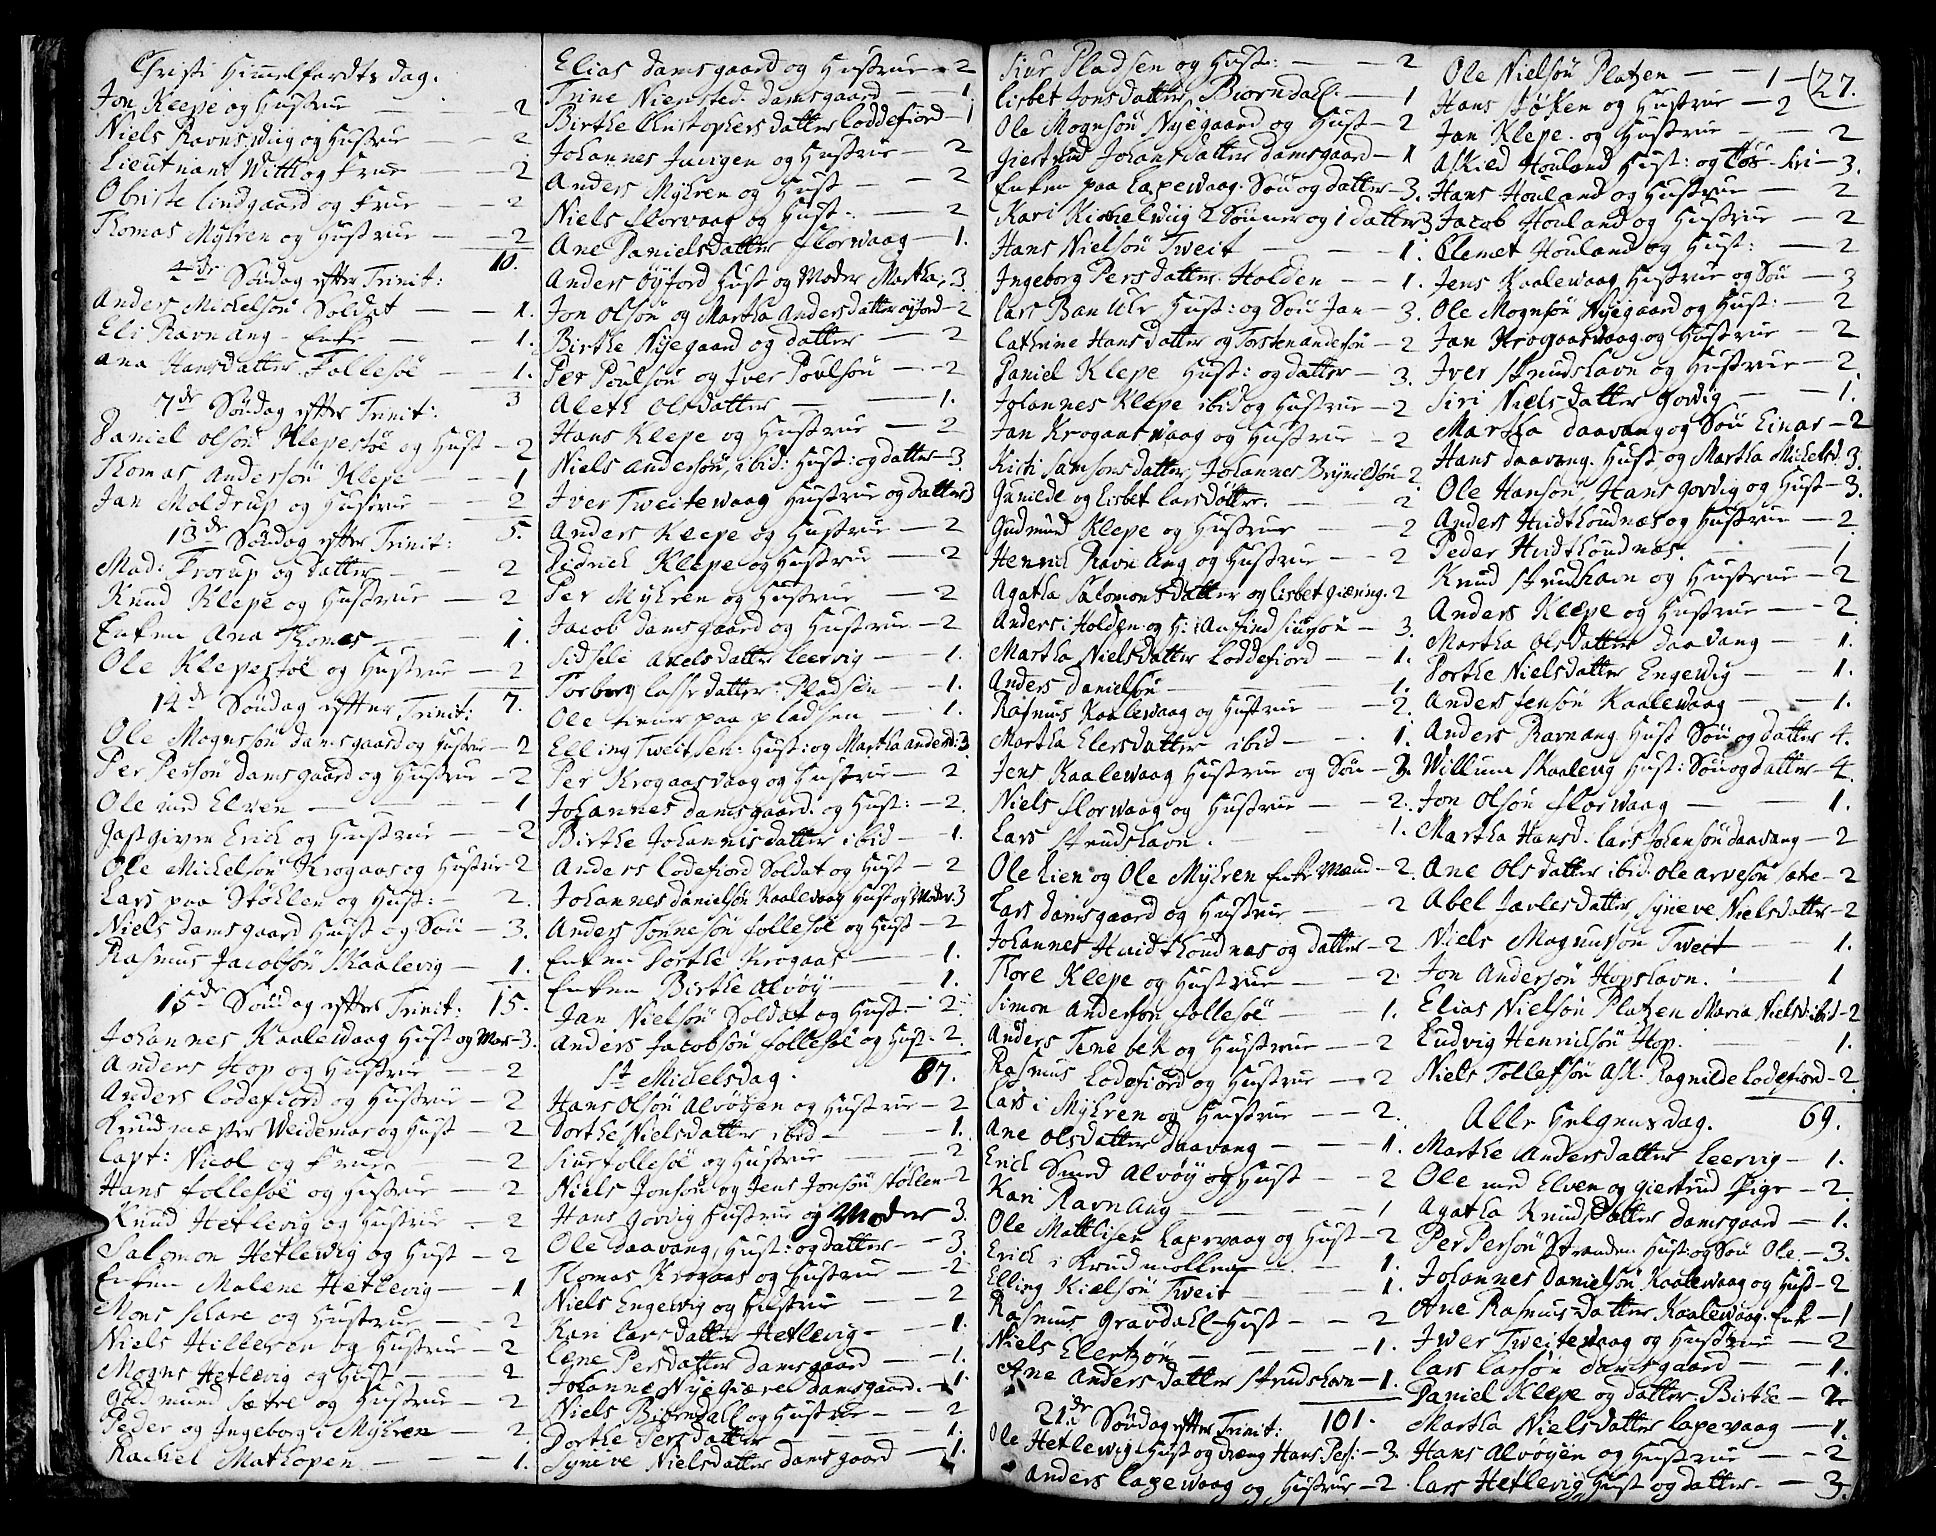 Christi Himmelfardts dag.
Jon Klepe og Hustrue — 2
Niels Ravnsdwiig og Hustrue — 2
Lieutnant Witt og Frue — 2
Obriste Lindgaard og Frue — 2
Thomas Myhren og Hustrue — 2
10.
4de Søndag efter Trinit:
Anders Michelsøn Soldat — 1.
Eli Ravnang Enke — 1.
Ana Hansdatter Follesøe — 1.
3
7de Søndag efter Trinit:
Daniel Olsøn Klepestøe og Hust — 2
Thomas Andersøn Klepe — 1
Jan Moldrup og Hustrue — 2
5.
13de Søndag efter Trinit:
Mad: Frorup og datter — 2
Knud Klepe og Hustrue — 2
Enken Ana Thomes — 1.
Ole Klepestøe og Hustrue — 2
7.
14de Søndag efter Trinit:
Ole Mognssøn damsgaard og Hustrue — 2
Per Persøn damsgaard og Hustrue — 2
Ole med Elven — 1
Gastgiver Erich og Hustrue — 2
Ole Michelsøn Krogaas og Hustrue 2
Lars paa Støhlen og Hust: — 2.
Niels damsgaard Hust og Søn — 3.
Rasmus Jacobsøn Skaalevig — 1.
15.
15de Søndag efter Trinit:
Johannes Kaalewaag Hust og Mor — 3.
Anders Hop og Hustrue — 2
Anders Lodefiord og Hustrue — 2
Krudmester Weidemar og Hust — 2
Capt: Nicol og Frue — 2
Hans Follesøe og Hustrue — 2
Knud Hetlevig og Hustrue — 2
Salomon Hetlewig og Hust — 2
Enken Malene Hetlevig — 1
Mons Schare og Hustrue — 2
Niels Hilleren og Hustrue — 2
Mogns Hetlevig og Hust — 2
Gudmund Sætre og Hustrue — 2
Peder og Ingeborg i Myhren — 2
Rachel Mathopen — 1.
Elias damsgaard og Hustrue — 2
Trine Niensted damsgaard — 1
Birthe Christophersdatter Loddefiord — 1
Johannes Juugen og Hustrue — 2
Anders Myhren og Hust — 2
Niels Florvaag og Hust — 2
Ane Danielsdatter Florwaag — 1.
Anders Øyjord Hust og Moder Martha, 3
Jon Olsøn og Martha Andersdatter øyjord — 2
Birthe Nyegaard og datter — 2
Per Poulsøn og Iver Poulsøn — 2
Aleth Olsdatter — 1.
Hans Klepe og Hustrue — 2
Niels Andersøn, ibid: Hust: og datter — 3.
Iver Tweitewaag Hustrue og datter 3
Anders Klepe og Hustrue — 2
Didrich Klepe og Hustrue — 2
Per Myhren og Hustrue — 2
Jacob damsgaard og Hustrue — 2
Sidsele Axelsdatter Leervig — 1.
Torborg Lassedatter Pladsen — 1.
Ole tiener paa pladsen — 1.
Elling Tweitsen: Hust: og Martha Andersd: 3
Per Krogaasvaag og Hustrue — 2
Johannes damsgaard og Hust: — 2
Birthe Johannisdatter ibid — 1.
Anders Lodefiord Soldat og Hust — 2
Johannes Danielsøn Kaalewaag Hust og Moder 3
Anders Tønnesøn Follesøe og Hust — 2
Enken Dorthe Krogaas — 1.
Enken Birthe Alvøy — 1.
Jan Nielsøn Soldat og Hust: — 2
Anders Jacobsøn Follesøe og Hust — 2.
St Michelsdag. 87.
Hans Olsøn Alvøyen og Hustrue — 2
Dorthe Nielsdatter ibid — 1.
Siur Follesøe og Hustrue — 2
Niels Jonsøn og Jens Jonsøn Støhlen — 2
Hans Govdig Hustrue og Moder — 3.
Ole daavang, Hust: og datter — 3.
Thomas Krogaas og Hustrue — 2
Niels Engewig og Hustrue — 2
Kari Larsdatter Hetlevig — 1.
Lene Persdatter damsgaard — 1.
Johanne Nye damsgaard. — 1
Niels Biørndall og Hustrue — 2
Dorthe Persdatter — 1.
Syneve Nielsdatter damsgaard — 1.
Siur Pladsen og Hust: — 2
Lisbet Jonsdatter, Biorndall. — 1
Ole Mognsøn Nyegaard og Hust — 2
Giertrud Johansdatter damsgaard — 1
Enken paa Lapewaag. Søn og datter — 3.
Kari Kickelwiig 2 Sønner og 1 datter 3
Hans Nielsøn Tweit — 1.
Ingeborg Persdatter Holden — 1.
Lars Hust: og Søn Jan — 3.
Cathrine Hansdatter og Torsten Andersøn — 2
Daniel Klepe Hust: og datter — 3.
Johannes Klepe ibid og Hustrue — 2
Jan Krogaasvaag og Hustrue — 2
Kirsti Samsonsdatter, Johannes Brynildsøn — 2
Gunilde og Lisbet Larsdøtter. — 2
Gudmund Klepe og Hustrue — 2
Henrich Ravnang og Hustrue — 2
Agatha Salomonsdatter og Lisbet Giæring. 2
Anders i Holden og H: Anfind Siursøn — 3.
Martha Nielsdatter Loddefiord — 1.
Anders Danielsøn — 1.
Rasmus Kaalewaag og Hustrue — 2.
Martha Elersdatter ibid — 1.
Jens Kaalewaag Hustrue og Søn — 3.
Niels Florwaag og Hustrue — 2.
Lars Strudshavn. — 1.
Ole Lien og Ole Myhren Enke Mænd — 2.
Lars Damsgaard og Hustrue — 2
Johannes Huidthoudnæs og datter — 2
Thore Klepe og Hustrue — 2.
Simon Andersøn Follesøe — 1.
Anders Tenebek og Hustrue — 2
Rasmus Lodefiord og Hustrue — 2
Lars i Myhren og Hustrue — 2.
Ane Olsdatter Daavang — 1.
Erich Smed Alvøy og Hust — 2
Kari Ravnang — 1
Ole Matthisen Lapevaag og Hust — 2
Erich i Krudmøllen — 1.
Elling Kielsøn Tweit — 1.
Rasmus Gravdahl Hust — 2
Niels Elertzøn — 1.
Ane Andersdatter Strudshavn — 1.
101.
21de Søndag efter Trinit:
Ole Hetlewig Hust og dreng Hans Pers: — 3.
Anders Lapewaag og Hustrue — 2
Ole Nielsøn Platzen — 1
(27.
Hans Støken og Hustrue — 2
Jan Klepe. og Hustrue — 2
Askild Houland Hust: og — 3.
Hans Houland og Hustrue — 2
Jacob Houland og Hustrue — 2
Clemet Houland og Hust: — 2
Jens Kaalewaag Hustrue og Søn — 3
Ole Mognsøn Nyegaard og Hust: — 2
Jan Krogaasvaag og Hustrue — 2
Iver Strudshavn og Hustrue — 2.
Siri Nielsdatter Govdig — 1.
Martha Daavang og Søn Einar — 2
Hans Daavang. Hust og Martha Michelsd. 3.
Ole Hansøn, Hans Govdig og Hust — 3.
Anders Hudthoudnæs og Hustrue — 2
Peder Hudthoudnæs. — 1
Knud Strudshavn og Hustrue — 2
Anders Klepe og Hustrue — 2
Martha Olsdatter Daavang — 1.
Dorthe Nielsdatter Engewig — 1.
Anders Jensøn Kaalewaag — 1.
Anders Ravnang Hust Søn og datter 4.
Willum Skaalevig Hust: Søn og datter — 4.
Jon Olsøn Florwaag — 1.
Martha Hansd. Lars Johansøn Daavang — 2
Ane Olsdatter ibid: Ole Arvesøn Sæte — 2
Abel Jarlesdatter, Syneve Nielsdatter — 2
Niels Magnussøn Tweit — 1.
Jon Andersøn Hopshavn. — 1
Elias Nielsøn Platzen Maria Nielsd: ibid — 2
Ludvig Hennilsøn Hop. — 1.
Niels Tollefsøn Ask: Ragnilde Lodefiord — 2.
69.
Alle Helgens dag.
Marthe Andersdatter Leervig — 1.
Ole med Elven og Giertrud Pige — 2.
Agatha Knudsdatter Damsgaard — 1.
Per Persøn Stranden Hust: og Søn Ole — 3.
Johannes Danielsøn Kaalewaag og Hust — 2
Ane Rasmusdatter Kaalewaag. Enke — 1
Iwer Tweitevaag og Hustrue — 2
Lars Larsøn Damsgaard — 1.
Daniel Klepe og datter: Birthe — 2
Martha Nielsdatter Lapevaag — 1.
Hans Alvøyen og Hustrue — 2
Lars Hetlevig Hust og datter — 3.